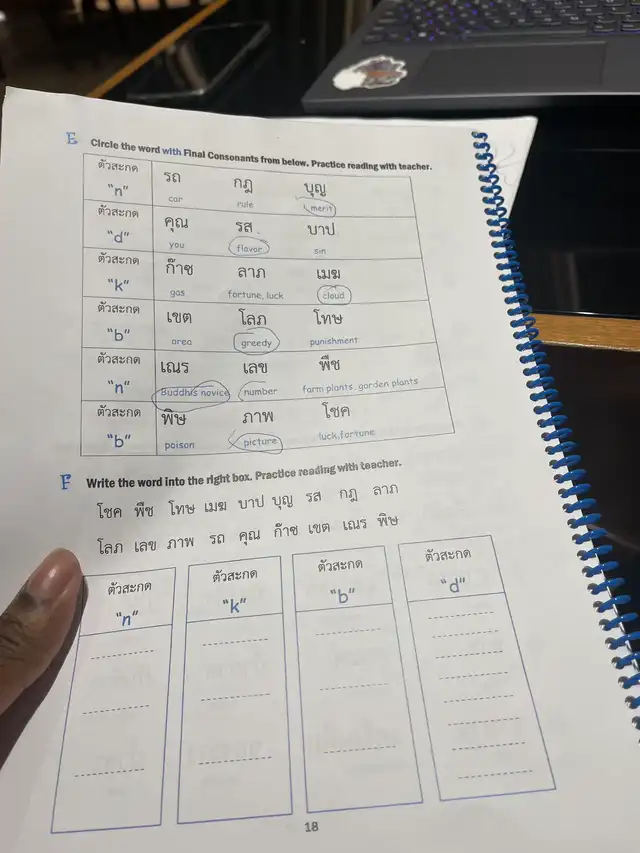 E Circle the word with Final Consonants from below. Practice reading with teacher.
ตัวสะกด "n" รถ กฎ บุญ
car rule merit
ตัวสะกด "d" คุณ รส บาป
you flavor sin
ตัวสะกด "k" ก๊าซ ลาภ เมฆ
gas fortune, luck cloud
ตัวสะกด "b" เขต โลภ โทษ
area greedy punishment
ตัวสะกด "n" เณร เลข พืช
Buddhis novice number farm plants, garden plants
ตัวสะกด "b" พิษ ภาพ โชค
poison picture luck,fortune
F Write the word into the right box. Practice reading with teacher.
โชค พืช โทษ เมฆ บาป บุญ รส กฎ ลาภ
โลภ เลข ภาพ รถ คุณ ก๊าซ เขต เณร พิษ
ตัวสะกด ตัวสะกด ตัวสะกด ตัวสะกด
"n" "k" "b" "d"
18